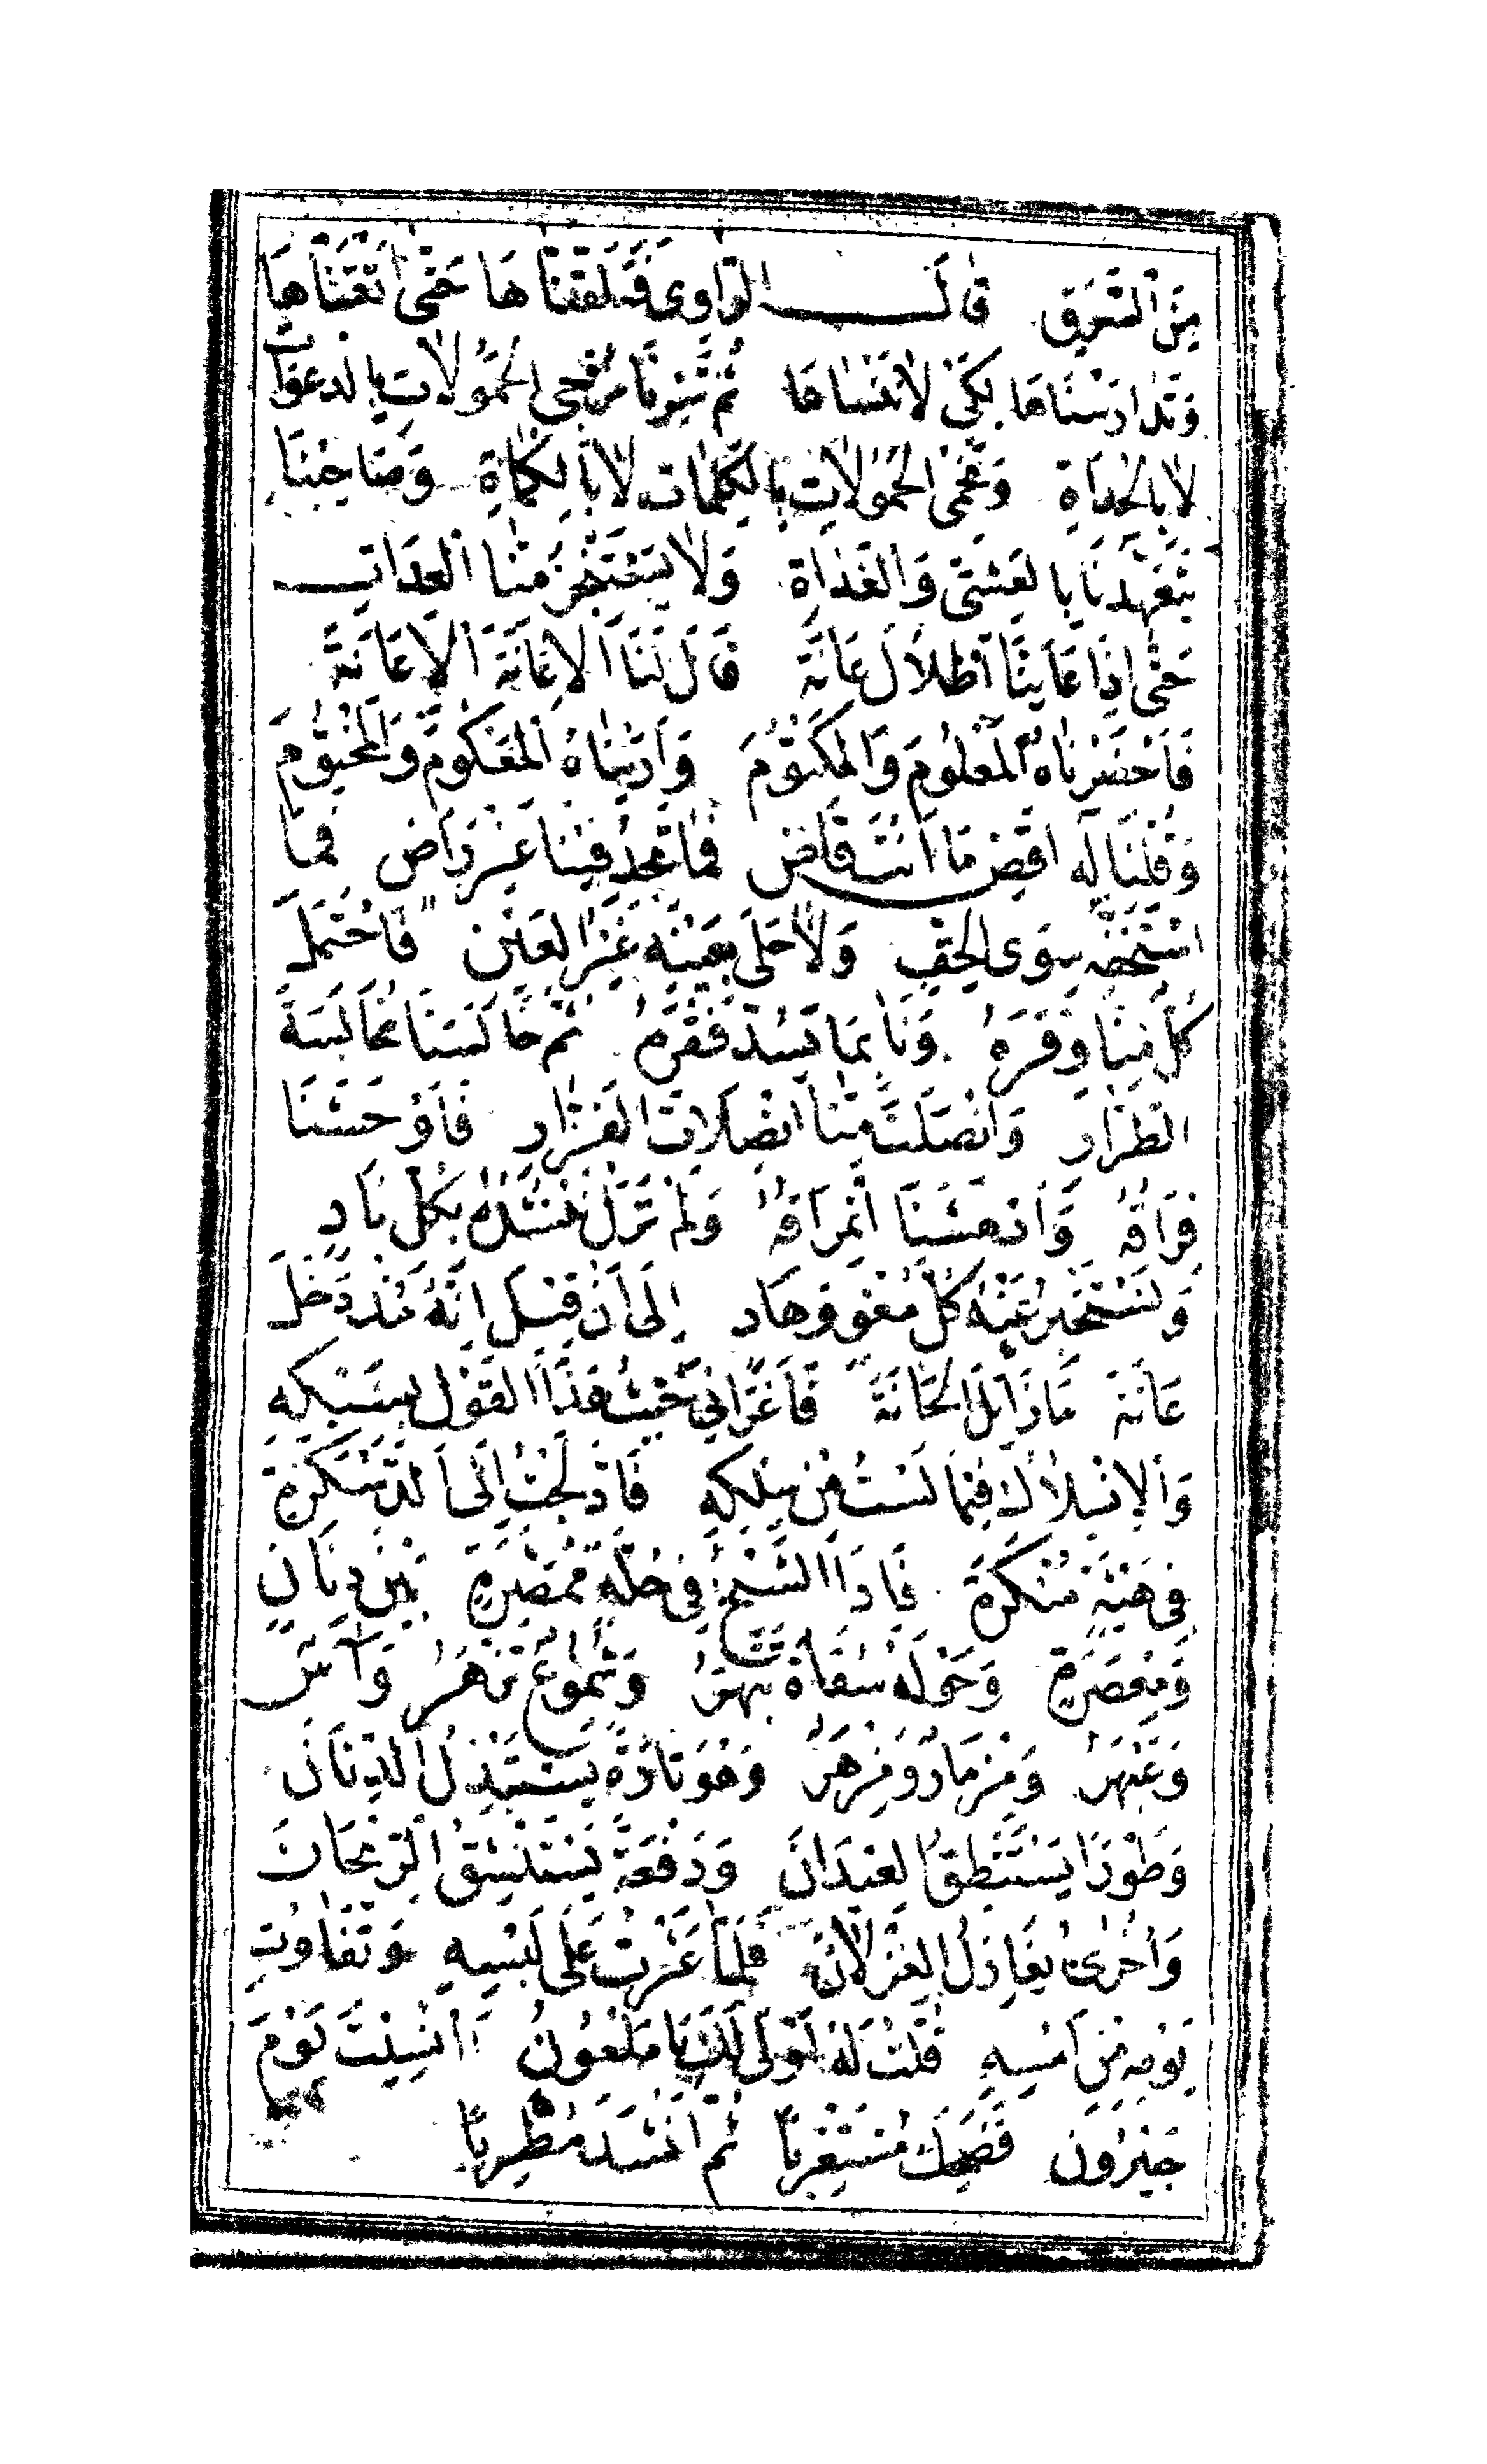 مِنَ الشَّرَقِ قَالَ الرَّاوِي فَتَلَقَّنَّاهَا حَتَّى أَتْقَنَّاهَا
وَتَدَارَسْنَاهَا لِكَيْ لَا نَنْسَاهَا ثُمَّ سِرْنَا نُزْجِي الحَمُولَاتِ بِالدَّعَوَاتِ
لَا بِالحُدَاةِ وَنَحْمِي الحُمُولَاتِ بِالكَلِمَاتِ لَا بِالكُمَاةِ وَصَاحِبُنَا
يَتَعَهَّدُنَا بِالعَشِيِّ وَالغَدَاةِ وَلَا يَسْتَنْجِزُ مِنَّا العِدَاتِ
حَتَّى إِذَا عَايَنَّا أَطْلَالَ عَانَةَ قَالَ لَنَا الإِعَانَةَ الإِعَانَةَ
فَأَحْضَرْنَاهُ المَعْلُومَ وَالمَكْتُومَ وَأَرَيْنَاهُ المَعْكُومَ وَالمَخْتُومَ
وَقُلْنَا لَهُ اقْضِ مَا أَنْتَ قَاضٍ فَمَا تَجِدُ فِينَا غَيْرَ رَاضٍ فَمَا
اسْتَخَفَّهُ سِوَى الخِفِّ وَلَا حَلِيَ بِعَيْنِهِ غَيْرُ العَيْنِ فَاحْتَمَلَ
كُلٌّ مِنَّا وَقَرَهُ وَنَاءَ بِمَا يَسُدُّ فَقْرَهُ ثُمَّ خَالَسَنَا مُخَالَسَةَ
الطَّرَّارِ وَانْصَلَتَ مِنَّا انْصِلَاتَ الفَرَّارِ فَأَوْحَشَنَا
فِرَاقُهُ وَأَدْهَشَنَا امِّرَاقُهُ وَلَمْ نَزَلْ نَنْشُدُهُ بِكُلِّ نَادٍ
وَنَسْتَخْبِرُ عَنْهُ كُلَّ مُغْوٍ وَهَادٍ إِلَى أَنْ قِيلَ إِنَّهُ مُذْ دَخَلَ
عَانَةَ مَا زَايَلَ الحَانَةَ فَأَغْرَانِي خُبْثُ هَذَا القَوْلِ بِسَبْكِهِ
وَالِانْسِلَاكِ فِيمَا لَسْتُ مِنْ سِلْكِهِ فَادَّلَجْتُ إِلَى الدَّسْكَرَةِ
فِي هَيْئَةٍ مُنَكَّرَةٍ فَإِذَا الشَّيْخُ فِي حُلَّةٍ مُمَصَّرَةٍ بَيْنَ دِنَانٍ
وَمِعْصَرَةٍ وَحَوْلَهُ سُقَاةٌ تَبْهَرُ وَشُمُوعٌ تَزْهَرُ وَآسٌ
وَعَبْهَرٌ وَمِزْمَارٌ وَمِزْهَرٌ وَهُوَ تَارَةً يَسْتَبْزِلُ الدِّنَانَ
وَطَوْرًا يَسْتَنْطِقُ العِيدَانَ وَدَفْعَةً يَسْتَنْشِقُ الرَّيْحَانَ
وَأُخْرَى يُغَازِلُ الغِزْلَانَ فَلَمَّا عَثَرْتُ عَلَى لَبْسِهِ وَتَفَاوُتِ
يَوْمِهِ مِنْ أَمْسِهِ قُلْتُ لَهُ أَوْلَى لَكَ يَا مَلْعُونُ أَأُنْسِيتَ يَوْمَ
جَيْرُونَ فَضَحِكَ مُسْتَغْرِبًا ثُمَّ أَنْشَدَ مُطْرِبًا